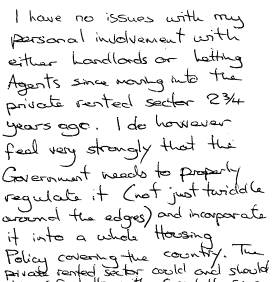 I have no issues with my
personal involvement with
either Landlords or Letting
Agents since moving into the
private rented sector 2¾
years ago. I do however
feel very strongly that the
Government needs to properly
regulate it (not just twiddle
around the edges) and incorporate
it into a whole Housing
Policy covering the country. The
private rented sector could and should